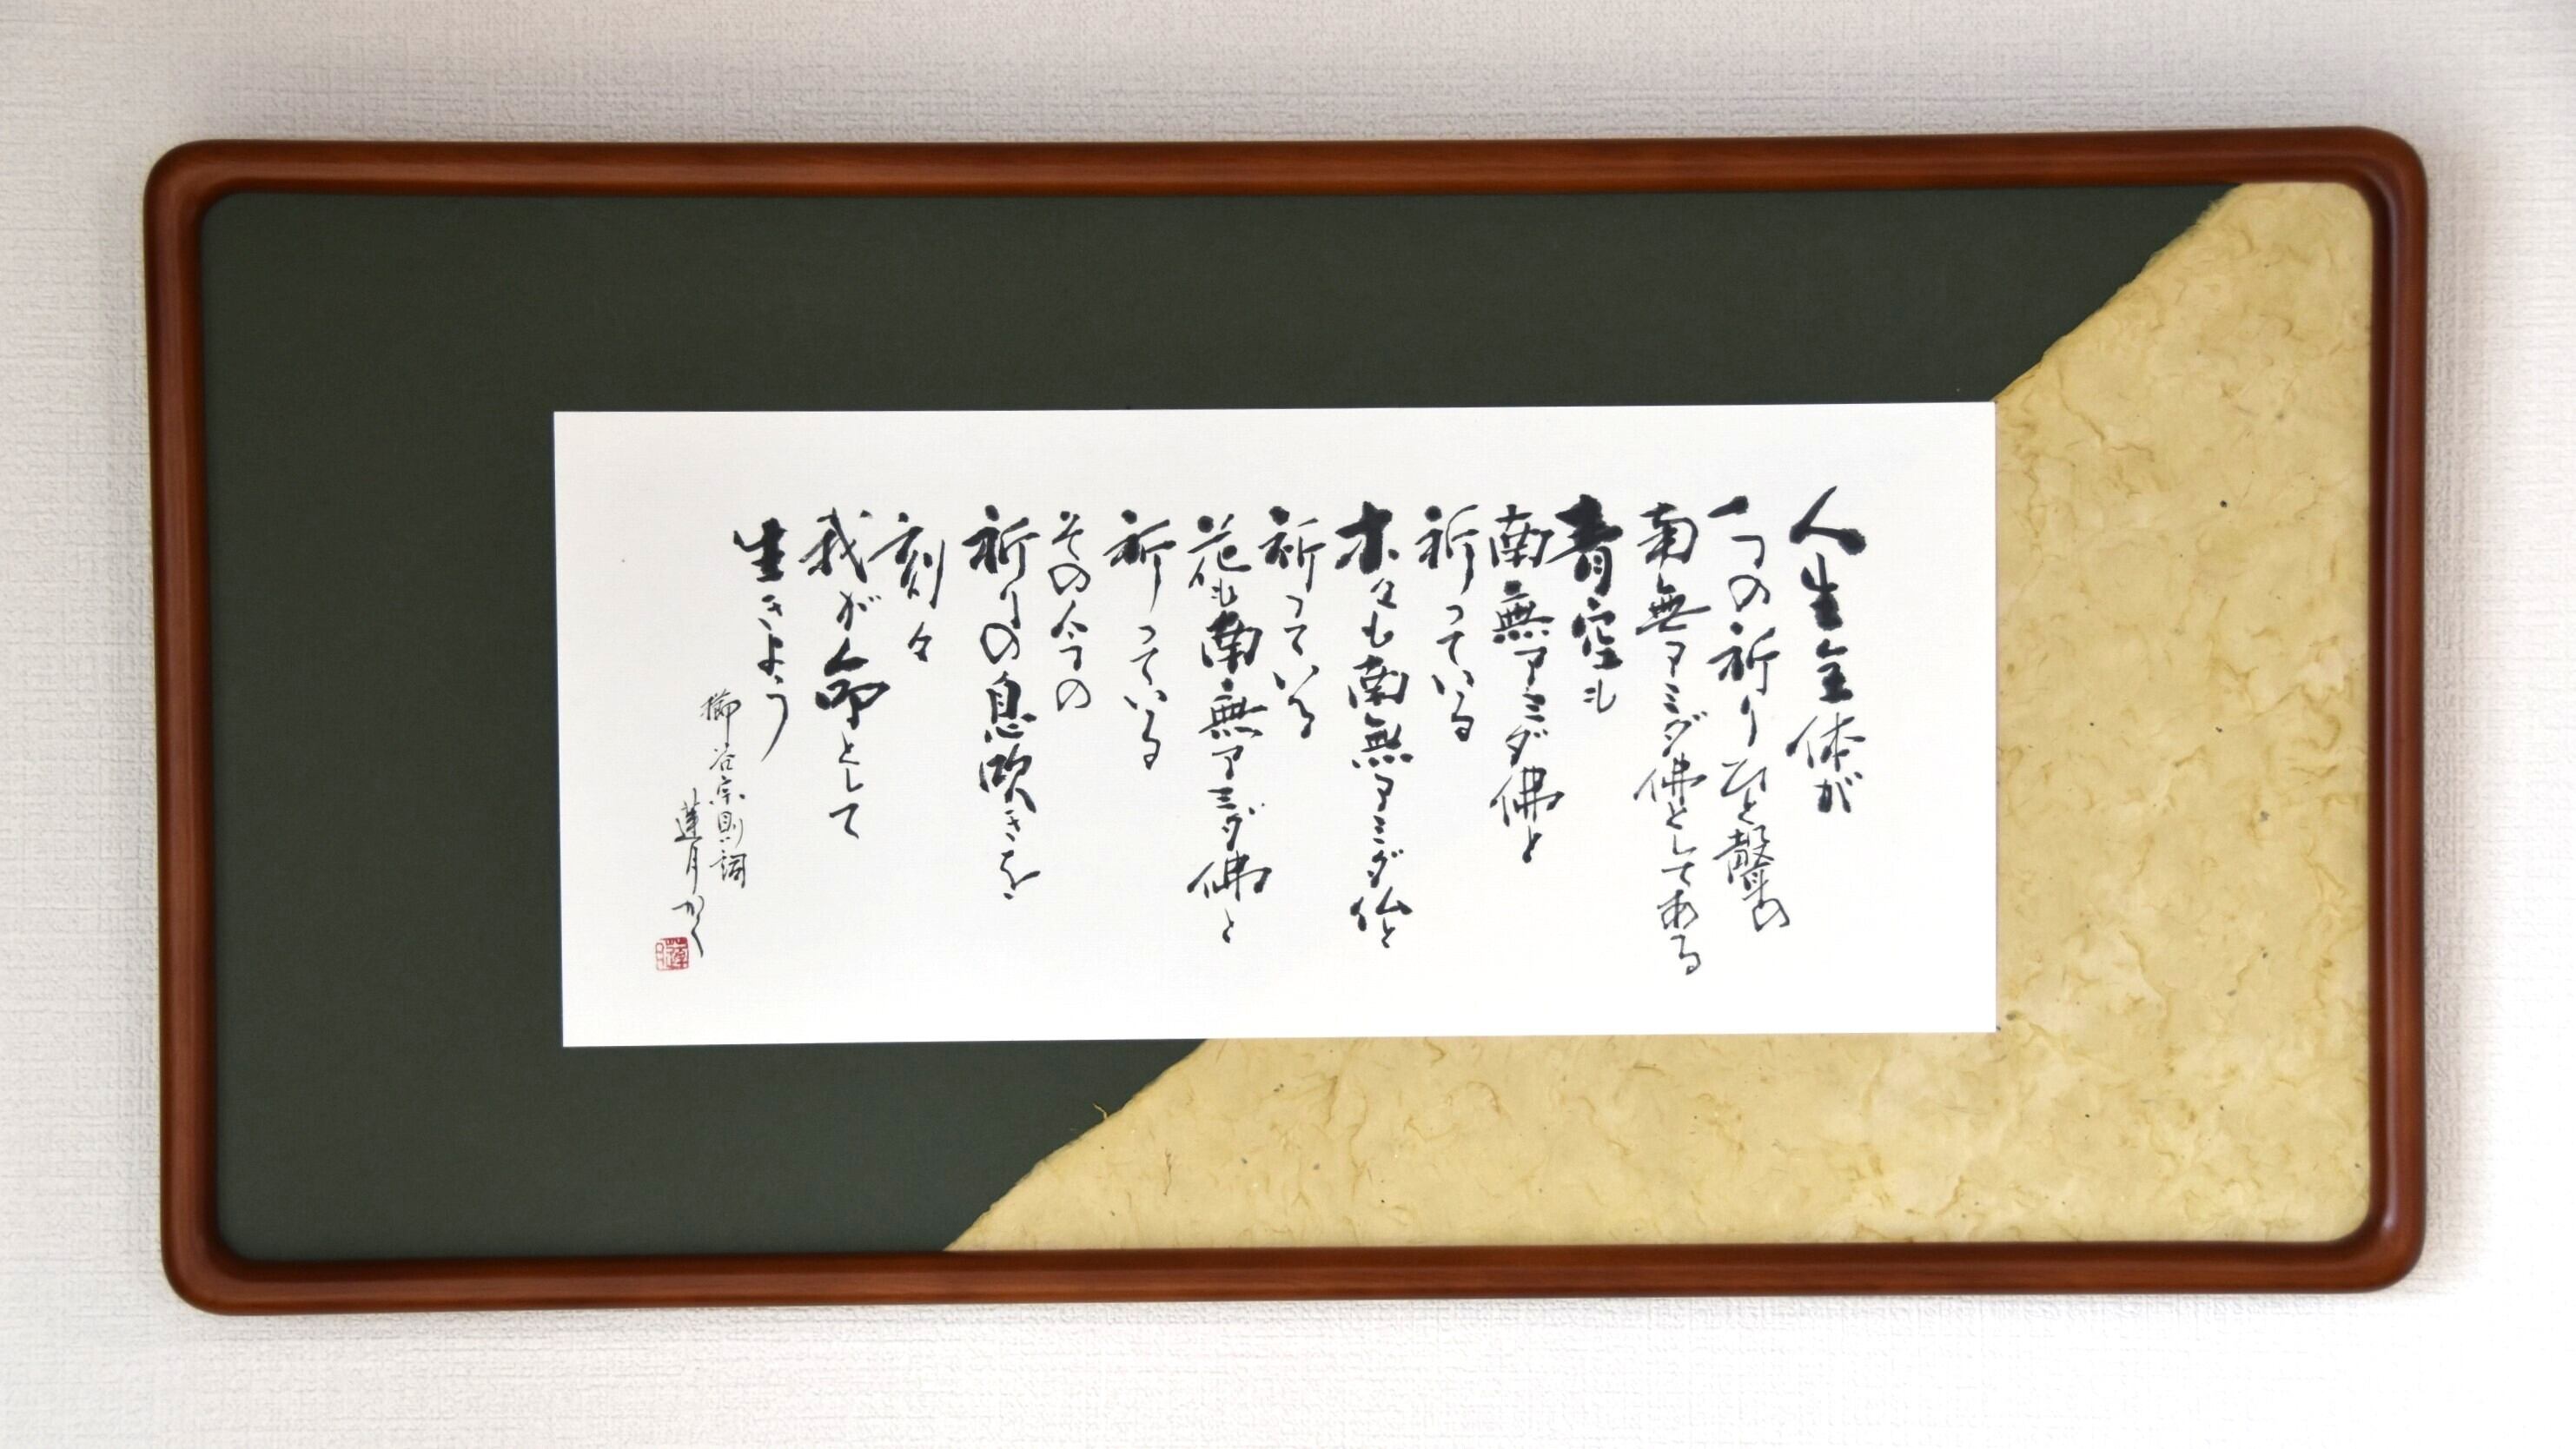 人生全体が
一つの祈り ひと聲の
南無アミダ佛としてある
青空も
南無アミダ佛と
祈っている
木々も南無アミダ仏と
祈っている
花も南無アミダ佛と
祈っている
その今つの
祈りの息吹きを
刻々
我が命として
生きよう
櫛谷宗則 詞
蓮月かく